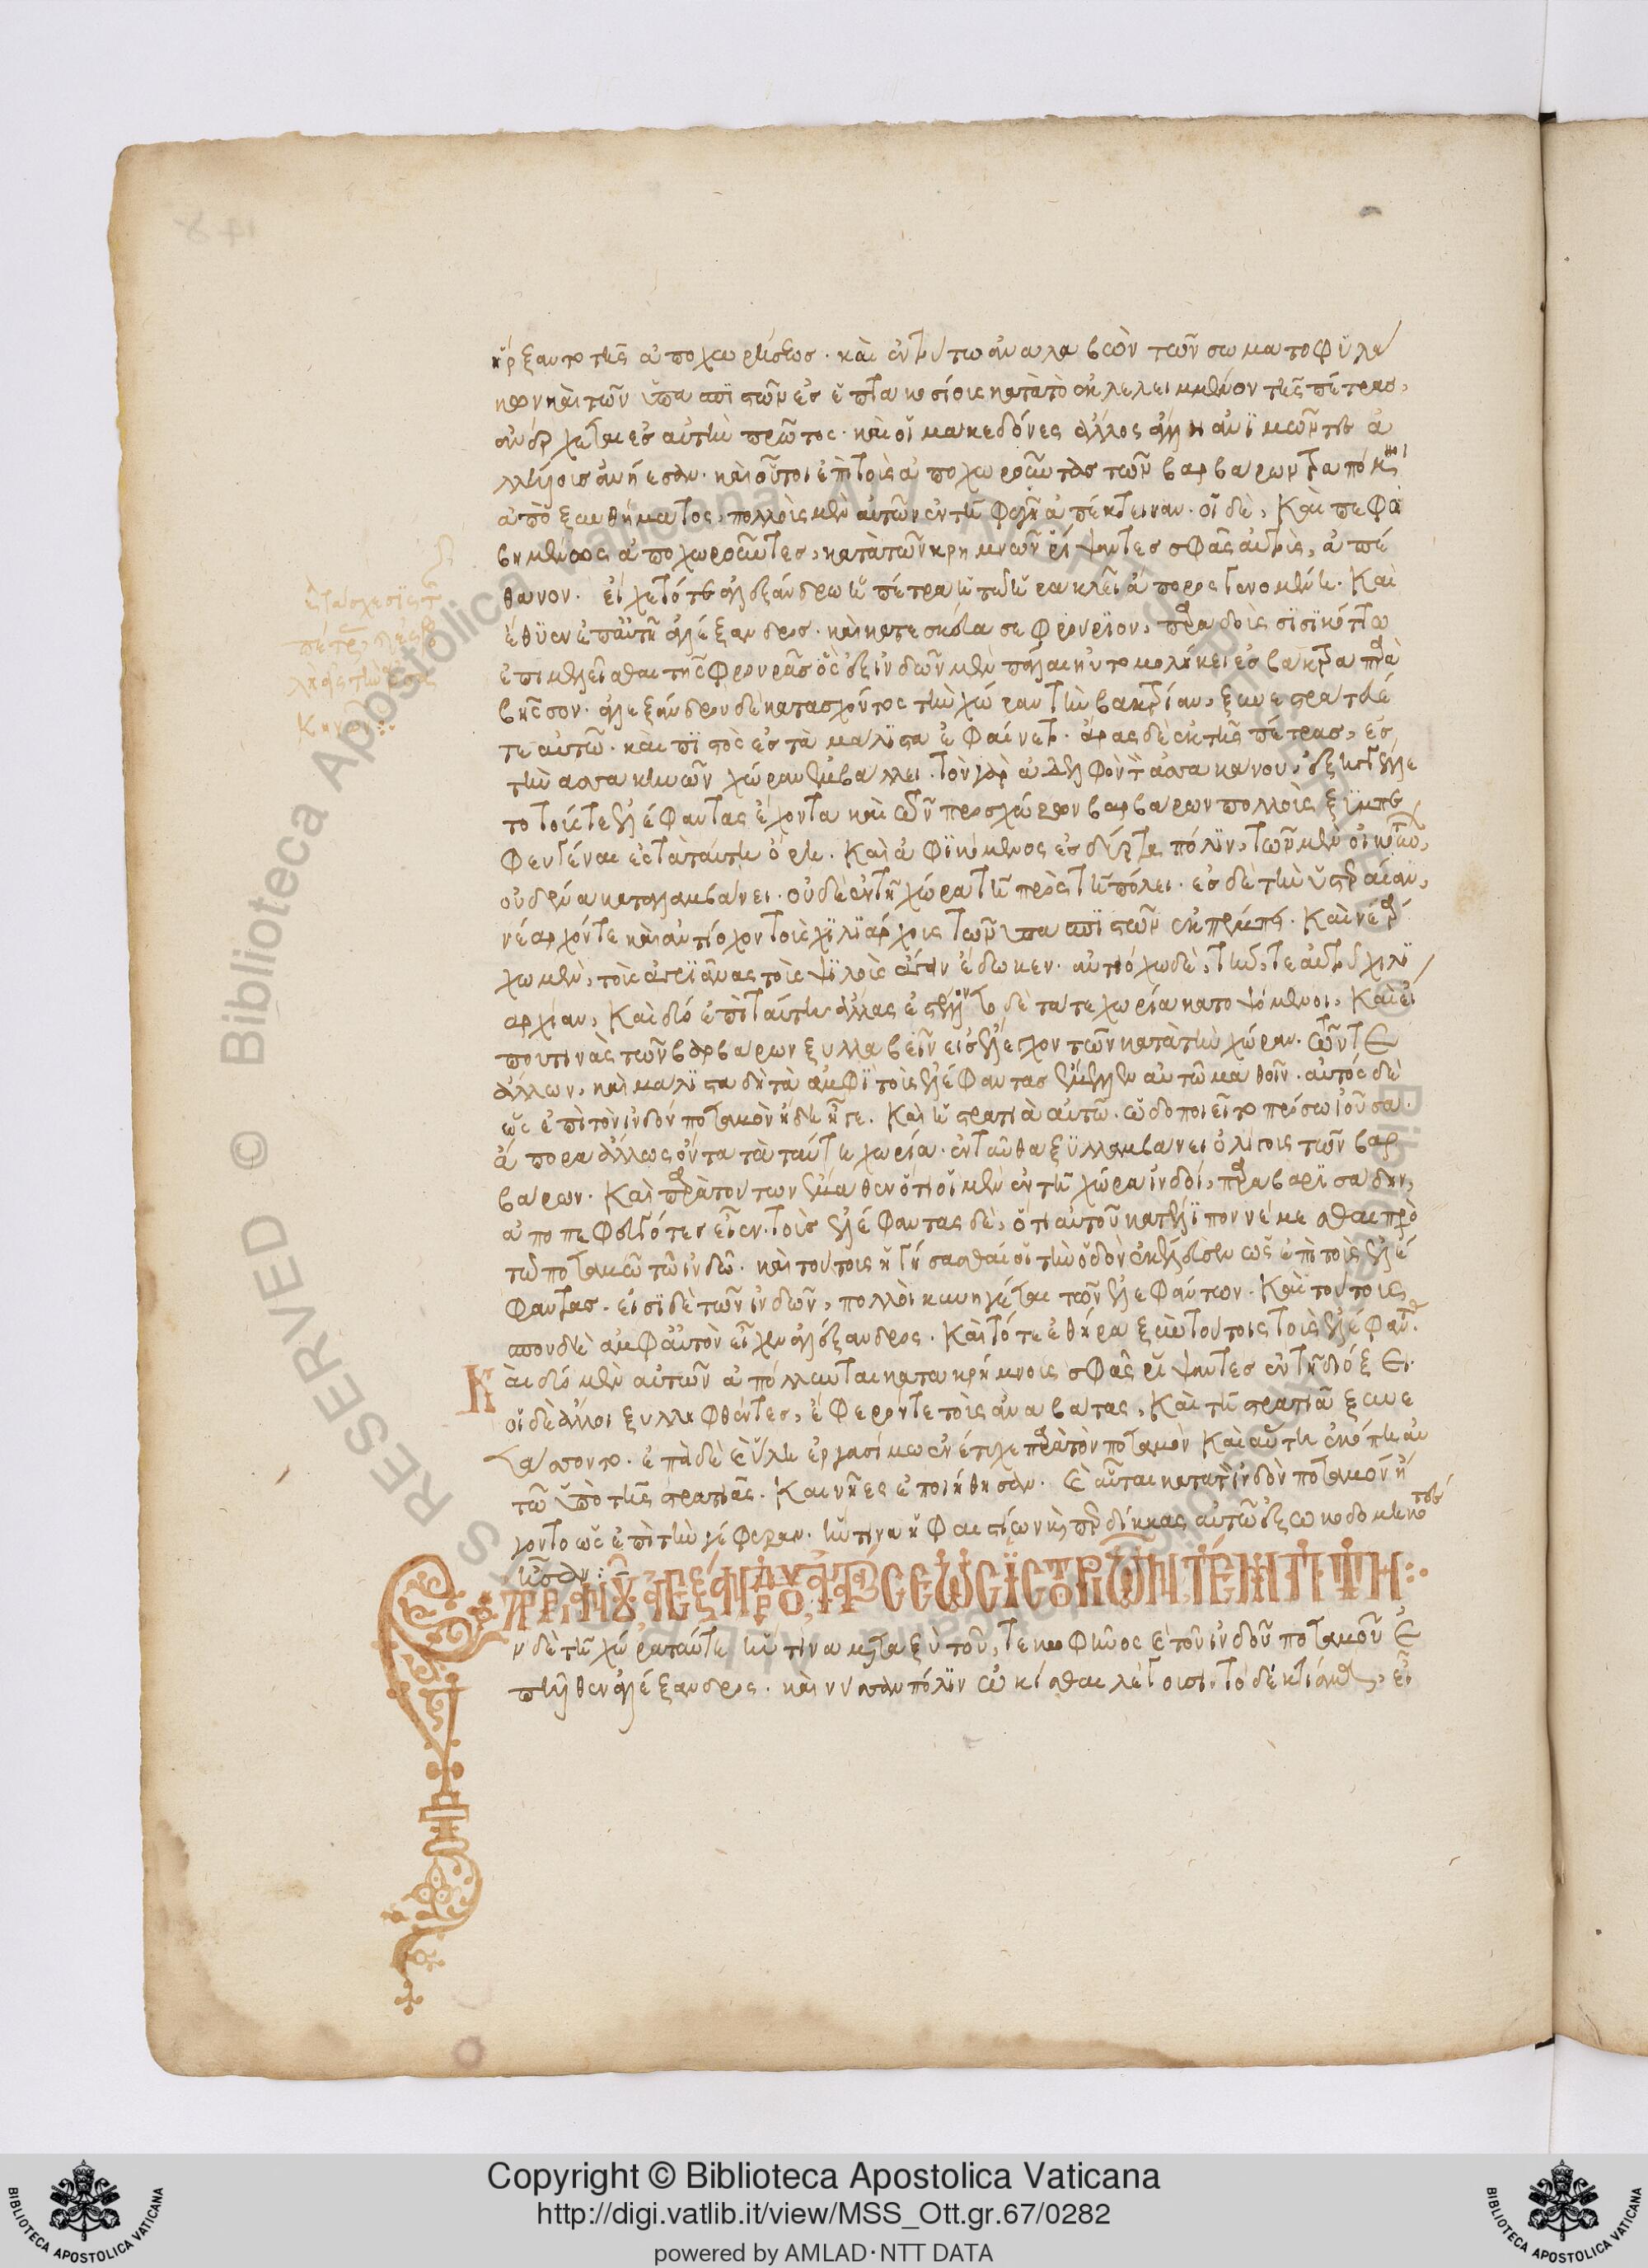 ἤρξαντο τῆς ἀποχωρήσεως. καὶ ἐν τούτω ἀναλαβὼν τῶν σωματοφυλά
κων καὶ τῶν ὑπασπιστῶν ἐς ἑπτακοσίους κατὰ τὸ ἐκλελειμμένον τῆς πέτρας,
ἀνέρχεται ἐς αὐτὴν πρῶτος. καὶ οἱ μακεδόνες ἄλλος ἄλλη ἀνιμῶντες ἀ
λλήλους ἀνήεσαν. καὶ οὗτοι ἐπὶ τοὺς ἀποχωροῦντας τῶν βαρβάρων τραπόμενοι
ἀπὸ ξυνθήματος, πολλοὺς μὲν αὐτῶν ἐν τῆ φυγῆ ἀπέκτειναν. οἱ δὲ, καὶ πεφο
βημένως ἀποχωροῦντες, κατὰ τῶν κρημνῶν ῥίψαντες σφᾶς αὐτοὺς, ἀπέ
θανον. εἴχετό τε ἀλεξάνδρω ἡ πέτρα ἡ τῶ ἡρακλεῖ ἄπορος γενομένη. καὶ
ἔθυεν ἐπ' αὐτῆ ἀλέξανδρος. καὶ κατεσκεύασε φρούριον, παραδοὺς σισικόττω
ἐπιμελεῖσθαι τῆς φρουρᾶς ὃς ἐξ ἰνδῶν μὲν πάλαι ηὐτομολήκει ἐς βάκτρα παρὰ
βῆσσον. ἀλεξάνδρου δὲ κατασχόντος τὴν χώραν τὴν βακτρίαν, ξυνεστράτευέ
τε αὐτῶ. καὶ πιστὸς ἐς τὰ μάλιστα ἐφαίνετο. ἄρας δὲ ἐκ τῆς πέτρας, ἐς
τὴν ασσακηνῶν χώραν ἐμβάλλει. τὸν γὰρ ἀδελφὸν τ' ἀσσακάνου, ἐξηγγέλλε
το τούς τε ἐλέφαντας ἔχοντα καὶ τῶν προσχώρων βαρβάρων πολλοὺς ξυμπε
φευγέναι ἐς τὰ ταύτη ὄρη. καὶ ἀφικόμενος ἐς δύρτα πόλιν, τῶν μὲν οἰκούντων,
οὐδένα καταλαμβάνει. οὐδὲ ἐν τῆ χώρα τῆ πρὸς τῆ πόλει. ἐς δὲ τὴν ὑστεραίαν,
νέαρχόν τε καὶ ἀντίοχον τοὺς χιλιάρχους τῶν ὑπασπιστῶν ἐκπέμπει. καὶ νεάρ
χω μὲν, τοὺς ἀγριᾶνας τοὺς ψιλοὺς ἄγειν ἔδωκεν. ἀντιόχω δὲ, τήν τε αὐτοῦ χιλι
αρχίαν, καὶ δύο ἐπὶ ταύτη ἄλλας ἐστέλλοντο δὲ τά τε χωρία κατοψόμενοι, καὶ εἴ
που τινὰς τῶν βαρβάρων ξυλλαβεῖν εἰς ἔλεγχον τῶν κατὰ τὴν χώραν. τῶν τε
ἄλλων, καὶ μάλιστα δὴ τὰ ἀμφὶ τοὺς ἐλέφαντας ἔμελεν αὐτῶ μαθεῖν. αὐτὸς δὲ
ὡς ἐπὶ τὸν ἰνδὸν ποταμὸν ἤδη ἦγε. καὶ ἡ στρατιὰ αὐτῶ. ὡδοποιεῖτο πρόσω ἰοῦσα.
ἄπορα ἄλλως ὄντα τὰ ταύτη χωρία. ἐνταῦθα ξυλλαμβάνει ὀλίγους τῶν βαρ
βάρων. καὶ παρὰ τούτων ἔμαθεν ὅτι οἱ μὲν ἐν τῆ χώρα ἰνδοὶ, παρὰ βαρισάδην,
ἀποπεφευγότες εἶεν. τοὺς ἐλέφαντας δὲ, ὅτι αὐτοῦ κατέλιπον νέμεσθαι πρὸ
τῶ ποταμῶ τῶ ἰνδῶ. καὶ τούτους ἡγήσασθαί οἱ τὴν ὁδὸν ἐκέλευσεν ὡς ἐπὶ τοὺς ἐλέ
φαντας. εἰσὶ δὲ τῶν ἰνδῶν, πολλοὶ κυνηγέται τῶν ἐλεφάντων. καὶ τούτους
σπουδῆ ἀμφ' αὐτὸν εἶχεν ἀλέξανδρος. καὶ τότε ἐθήρα ξὺν τούτοις τοὺς ἐλέφαντας.
Καὶ δύο μὲν αὐτῶν ἀπόλλυνται κατὰ κρημνοὺς σφᾶς ῥίψαντες ἐν τῆ διώξει.
οἱ δὲ ἄλλοι ξυλληφθέντες, ἔφερόν τε τοὺς ἀναβάτας, καὶ τῆ στρατιᾶ ξυνε
τάσσοντο. ἐπὰ δὲ καὶ ὕλη ἐργασίμω ἐνέτυχε παρὰ τὸν ποταμὸν καὶ αὕτη ἐκόπη αὐ
τῶ ὑπὸ τῆς στρατιᾶς. καὶ νῆες ἐποιήθησαν. καὶ αὗται κατὰ τὸν ἰνδὸν ποταμὸν ἤ
γοντο ὡς ἐπὶ τὴν γέφυραν. ἥντινα ἡφαιστίων καὶ περδίκκας αὐτῶ ἐξωκοδομηκότες
ἦσαν:
ν δὲ τῆ χώρα ταύτη ἥντινα μεταξὺ τοῦ, τε κωφῆνος καὶ τοῦ ἰνδοῦ ποταμοῦ ἐ
πῆλθεν ἀλέξανδρος. καὶ νύσσαν πόλιν ὠκίσθαι λέγουσι. τὸ δὲ κτίσμα, εἶ
Copyright © Biblioteca Apostolica Vaticana
http://digi.vatlib.it/view/MSS_Ott.gr.67/0282
powered by AMLAD·NTT DATA
BIBLIOTECA APOSTOLICA VATICANA
BIBLIOTECA APOSTOLICA VATICANA